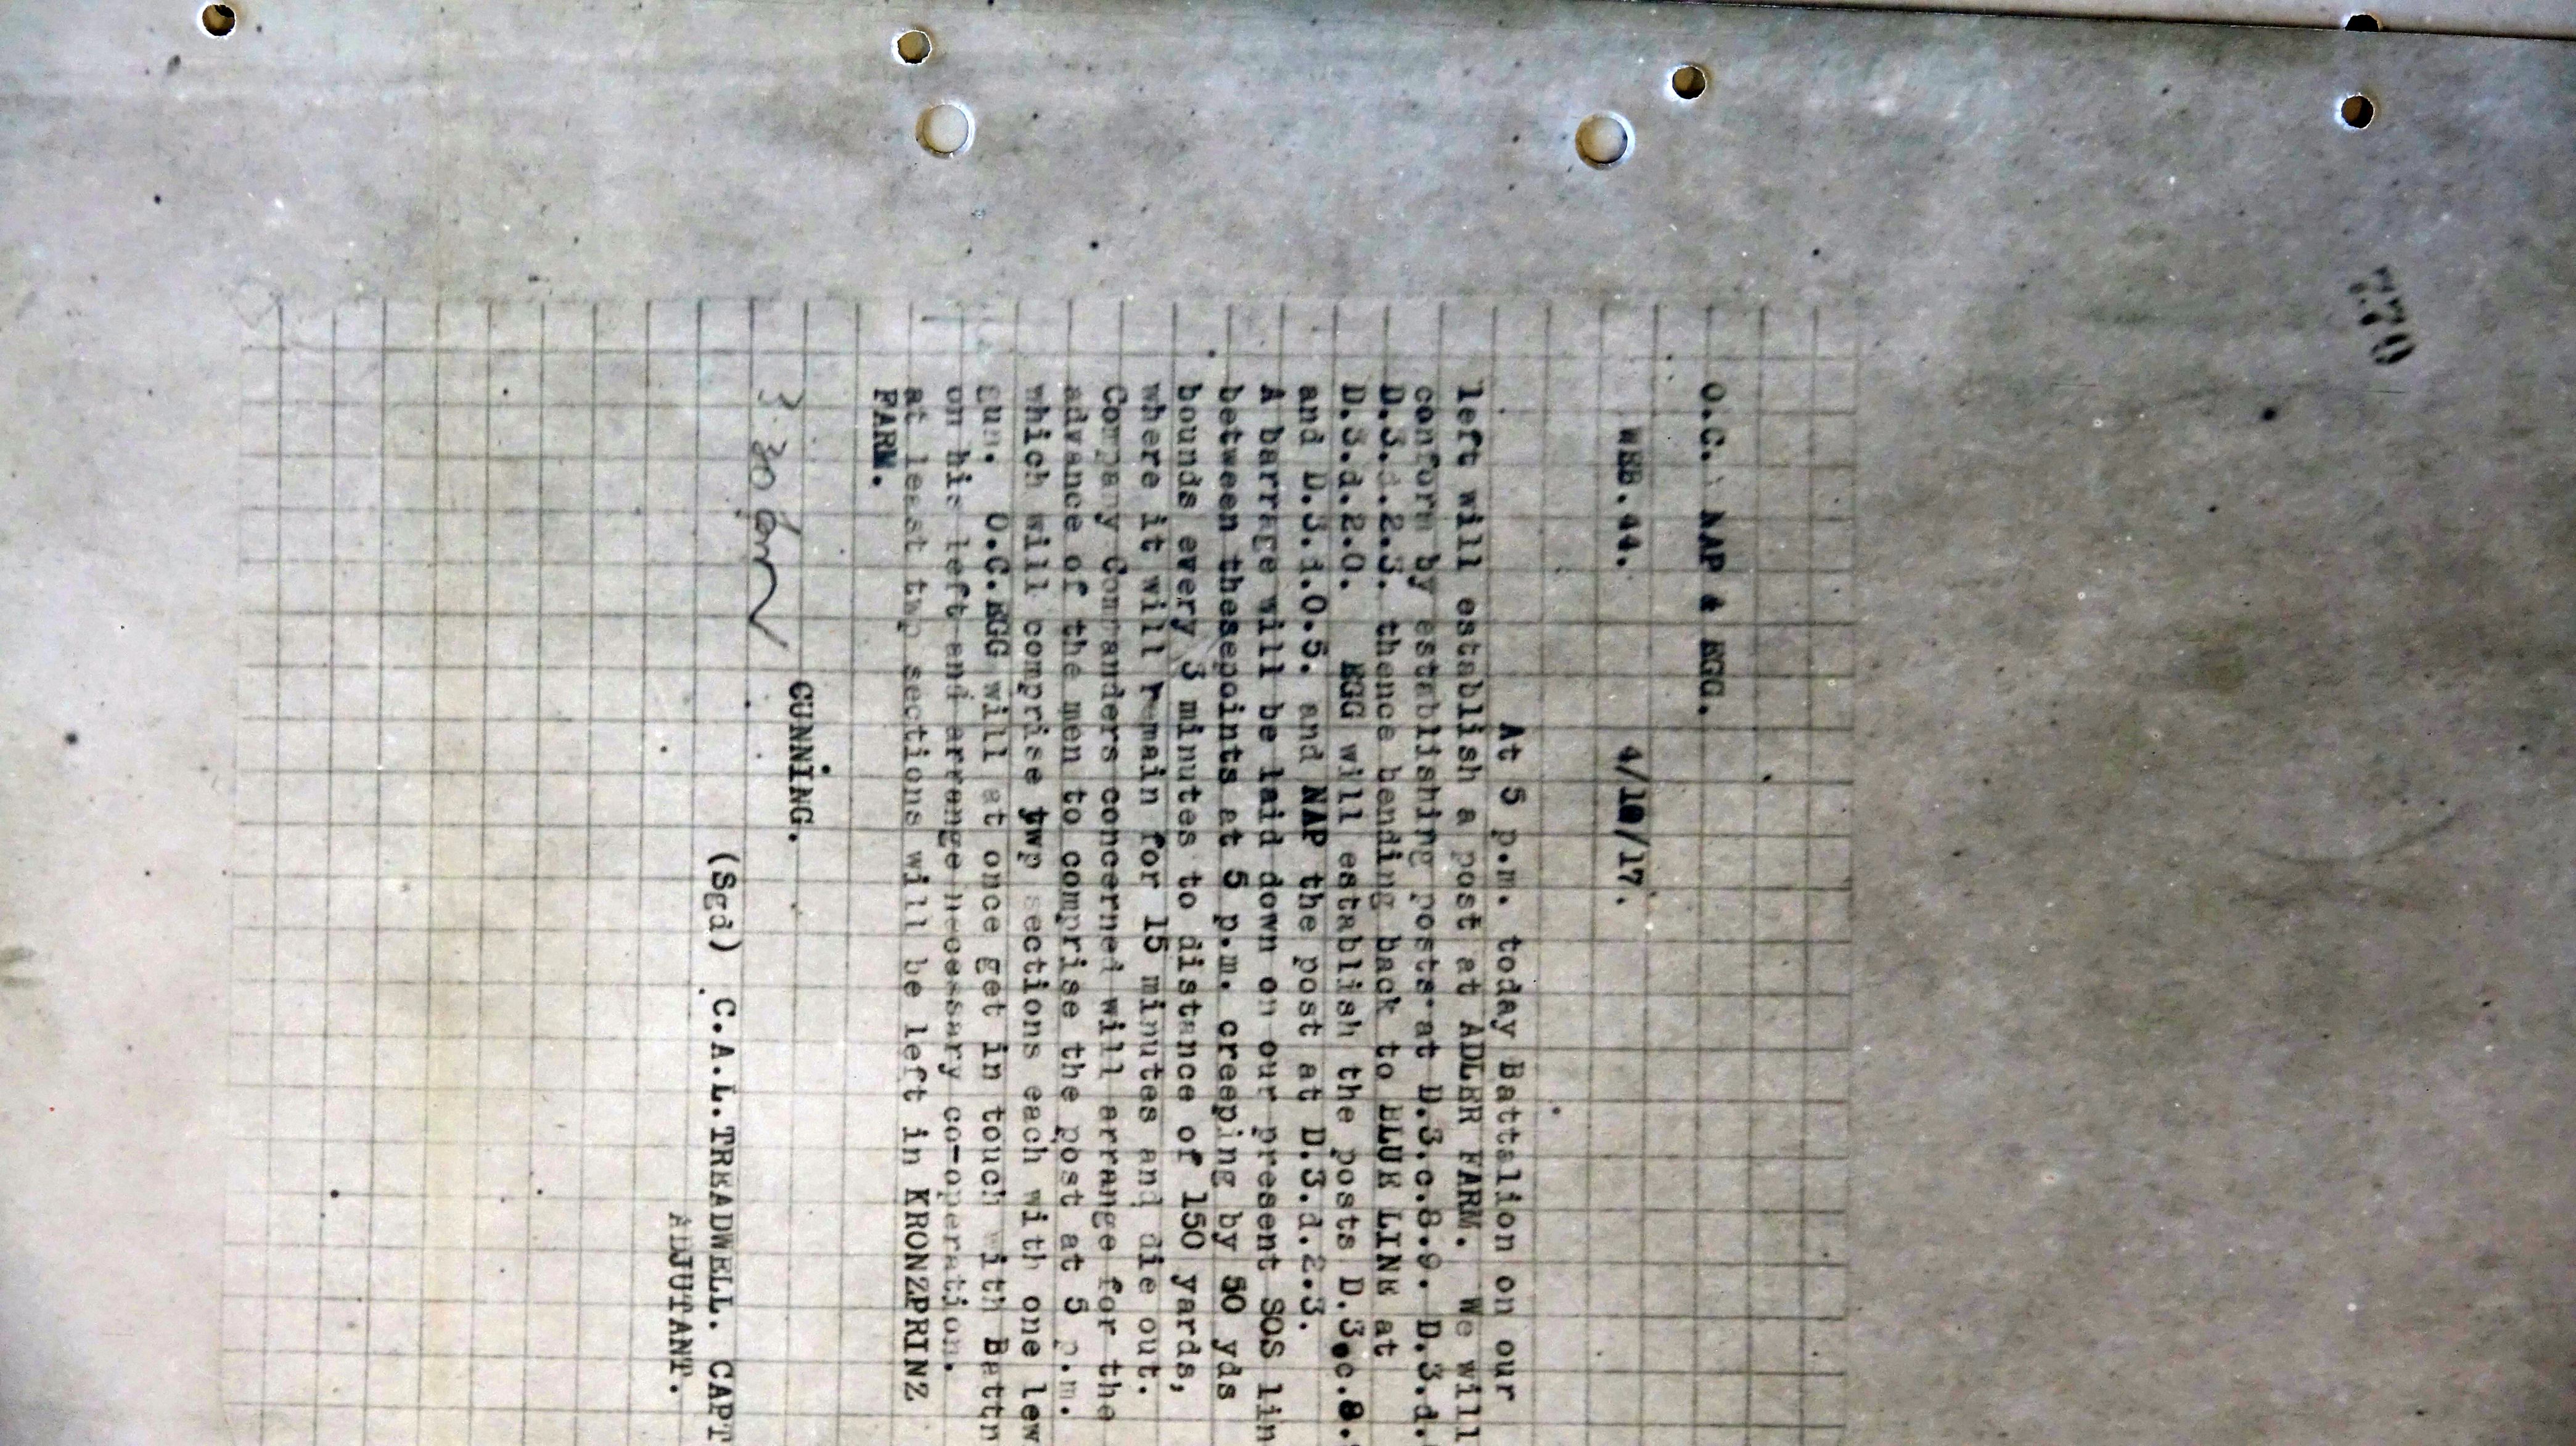 O.C. NAP & EGG.
WEB.44. 4/10/17.
At 5 p.m. today Battalion on our
left will establish a post at ADLER FARM. We will
conform by establishing posts at D.3.c.8.9. D.3.d.
D.3.d.2.3. thence bending back to BLUE LINE at
D.3.d.2.0. EGG will establish the posts D.3.c.8.
and D.3.d.0.5. and NAP the post at D.3.d.2.3.
A barrage will be laid down on our present SOS lin
between thesepoints at 5 p.m. creeping by 50 yds
bounds every 3 minutes to distance of 150 yards,
where it will remain for 15 minutes and die out.
Company Commanders concerned will arrange for the
advance of the men to comprise the post at 5 p.m.
which will comprise two sections each with one lew
gun. O.C.EGG will at once get in touch with Battn
on his left and arrange necessary co-operation.
at least two sections will be left in KRONZPRINZ
FARM.
CUNNING.
3.30 pm
(Sgd) C.A.L.TREADWELL. CAPT
ADJUTANT.